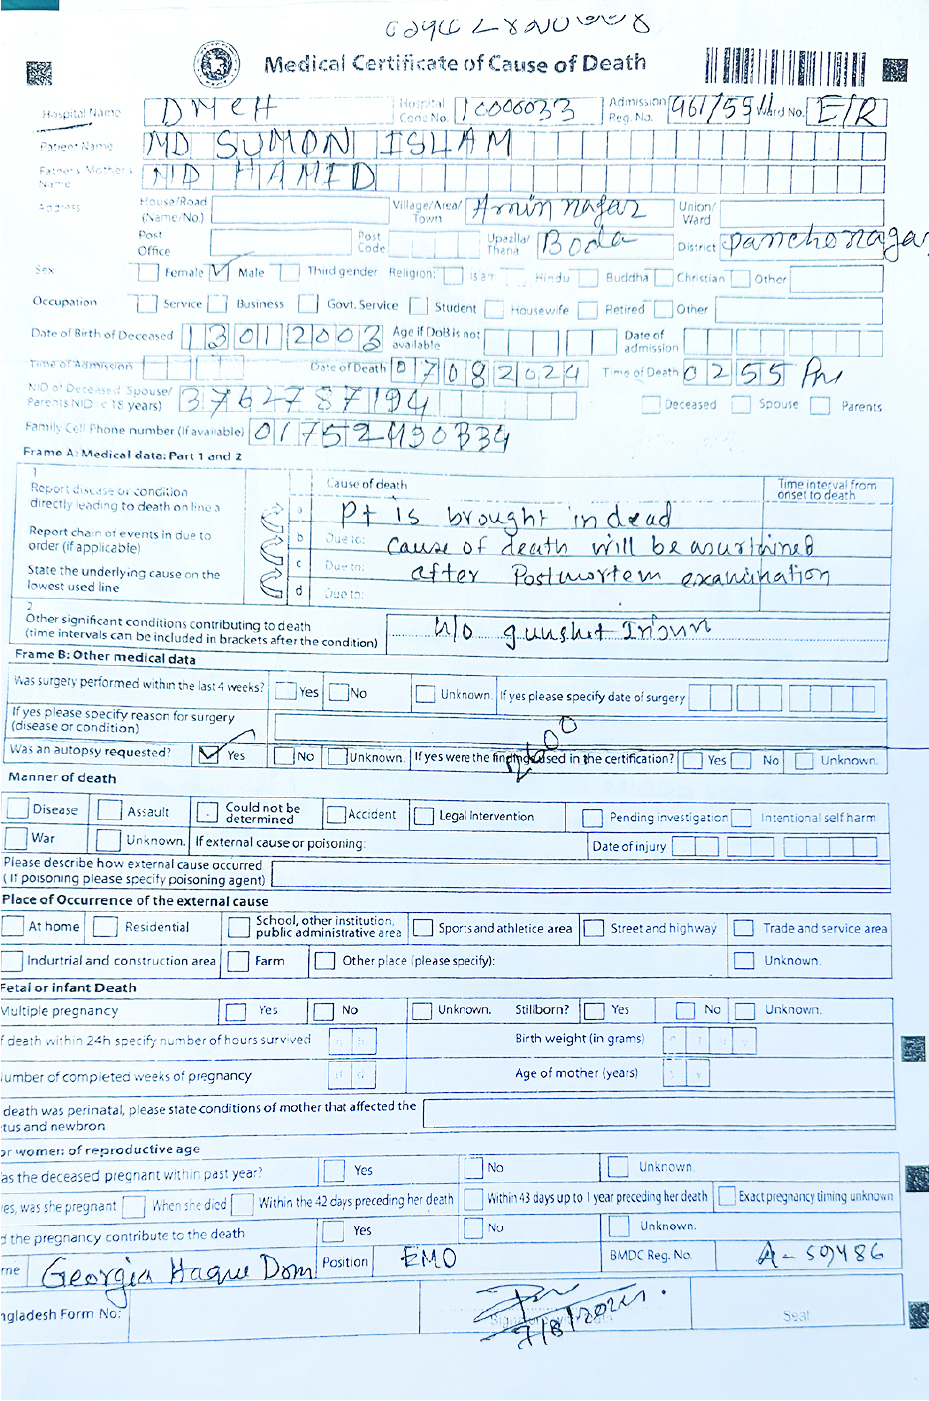 Medical Certificate of Cause of Death
Hospital Name DMCH Hospital Code No. 10000033 Admission Reg. No. 961/5511 Ward No. E/R
Patient Name MD SUMON ISLAM
Father's Mother's Name MD HAMID
Address House/Road (Name/No.) Village/Area/Town Amin nagar Union/Ward
Post Office Post Code Upazilla/Thana Boda District panchonagar
Sex Female Male Third gender Religion: Islam Hindu Buddha Christian Other
Occupation Service Business Govt. Service Student Housewife Retired Other
Date of Birth of Deceased 13012003 Age if DoB is not available Date of admission
Time of Admission Date of Death 07082024 Time of Death 0255 Pm
NID of Deceased Spouse/Parents NID < 18 years) 3762787194 Deceased Spouse Parents
Family Cell Phone number (If available) 01752490334
Frame A: Medical data: Part 1 and 2
1 Cause of death Time interval from onset to death
Report disease or condition directly leading to death on line a
a Pt is brought in dead
Report chain of events in due to order (if applicable)
b Due to: Cause of death will be asurtained
State the underlying cause on the lowest used line
c Due to: after Postmortem examination
d Due to:
2
Other significant conditions contributing to death (time intervals can be included in brackets after the condition) H/O gunshot
Frame B: Other medical data
Was surgery performed within the last 4 weeks? Yes No Unknown. If yes please specify date of surgery
If yes please specify reason for surgery (disease or condition)
Was an autopsy requested? Yes No Unknown. If yes were the findings used in the certification? Yes No Unknown.
Manner of death
Disease Assault Could not be determined Accident Legal Intervention Pending investigation Intentional self harm
War Unknown. If external cause or poisoning: Date of injury
Please describe how external cause occurred (If poisoning please specify poisoning agent)
Place of Occurrence of the external cause
At home Residential School, other institution, public administrative area Sports and athletice area Street and highway Trade and service area
Indurtrial and construction area Farm Other place (please specify): Unknown.
Fetal or infant Death
Multiple pregnancy Yes No Unknown. Stillborn? Yes No Unknown.
f death within 24h specify number of hours survived Birth weight (in grams)
umber of completed weeks of pregnancy Age of mother (years)
death was perinatal, please state conditions of mother that affected the
tus and newbron
or women of reproductive age
as the deceased pregnant within past year? Yes No Unknown
es, was she pregnant When she died Within the 42 days preceding her death Within 43 days up to 1 year preceding her death Exact pregnancy timing unknown
d the pregnancy contribute to the death Yes No Unknown.
me Georgia Haque Dom Position EMO BMDC Reg. No. A-59486
ngladesh Form No: 7/8/2024. Seal